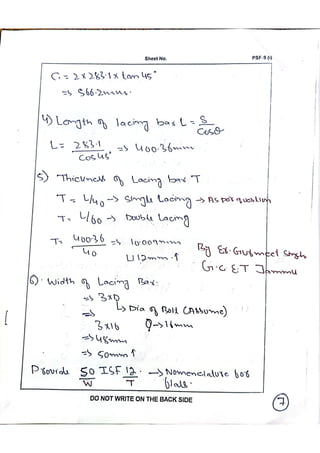 Sheet No. PSF-9 (i)
C = 2 x 283.1 x tan 45°
=> 566.2mm.
4) Length of lacing bar L = S/Cosθ
L = 283.1/Cos 45° => 400.36mm
5) Thickness of Lacing bar T
T = L/40 -> Single Lacing -> As per question
T = L/60 -> Double Lacing
T = 400.36/40 => 10.009mm
12mm ↑
By Er. Gurmeet Singh
G.C.E.T Jammu
6) Width of Lacing Bar:
=> 3xD
=> Dia of Bolt (Assume)
3x16 D->16mm
=> 48mm
=> 50mm ↑
Provide 50 ISF 12. -> Nomenclature for
W T plate.
DO NOT WRITE ON THE BACK SIDE
7